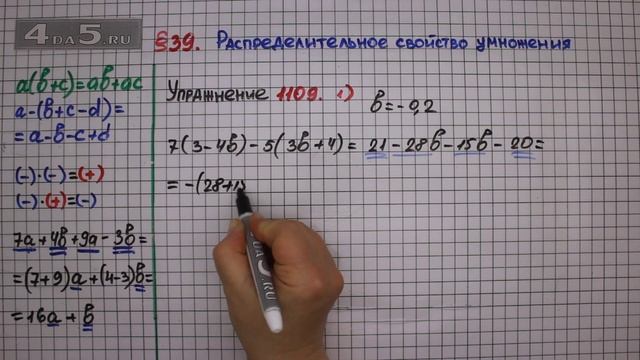 4DA5.RU
§39. Распределительное свойство умножения
a(b+c)=ab+ac
a-(b+c-d)=
=a-b-c+d
(-)·(-)=(+)
(-)·(+)=(-)
7a+4b+9a-3b=
=(7+9)a+(4-3)b=
=16a+b
Упражнение 1109. 1)
b=-0,2
7(3-4b)-5(3b+4)=21-28b-15b-20=
=-(28+15
4DA5.RU